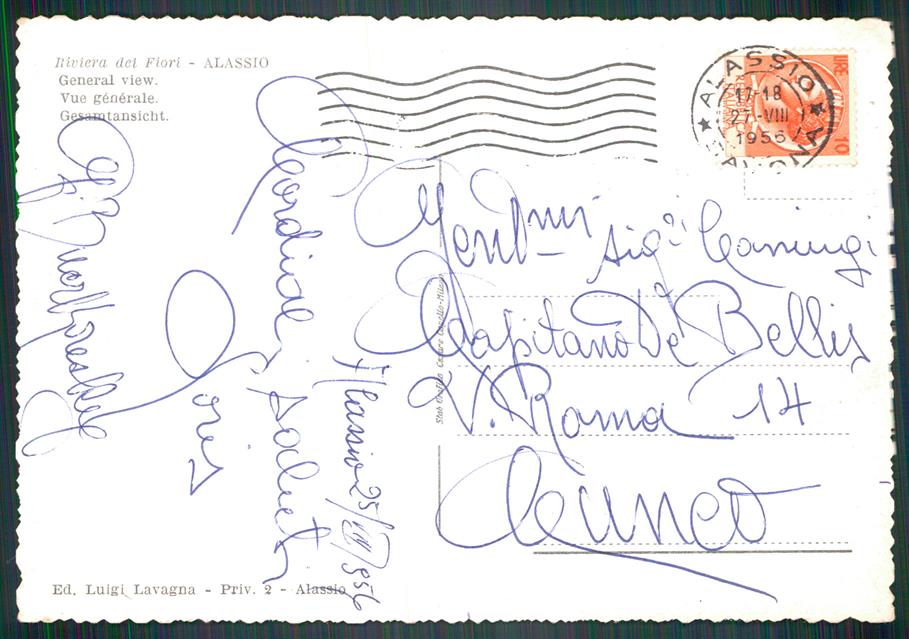 Riviera dei Fiori - ALASSIO
General view.
Vue générale.
Gesamtansicht.
ALASSIO
17-18
27-VIII
1956
LIRE 10
Alassio 25/VIII/956
Cordiali saluti
Doris
Gent.mi Sig.i
Capitano De Bellis
V. Roma 14
Cuneo
Stab. Grafico Cesare Capello-Milano
Ed. Luigi Lavagna - Priv. 2 - Alassio